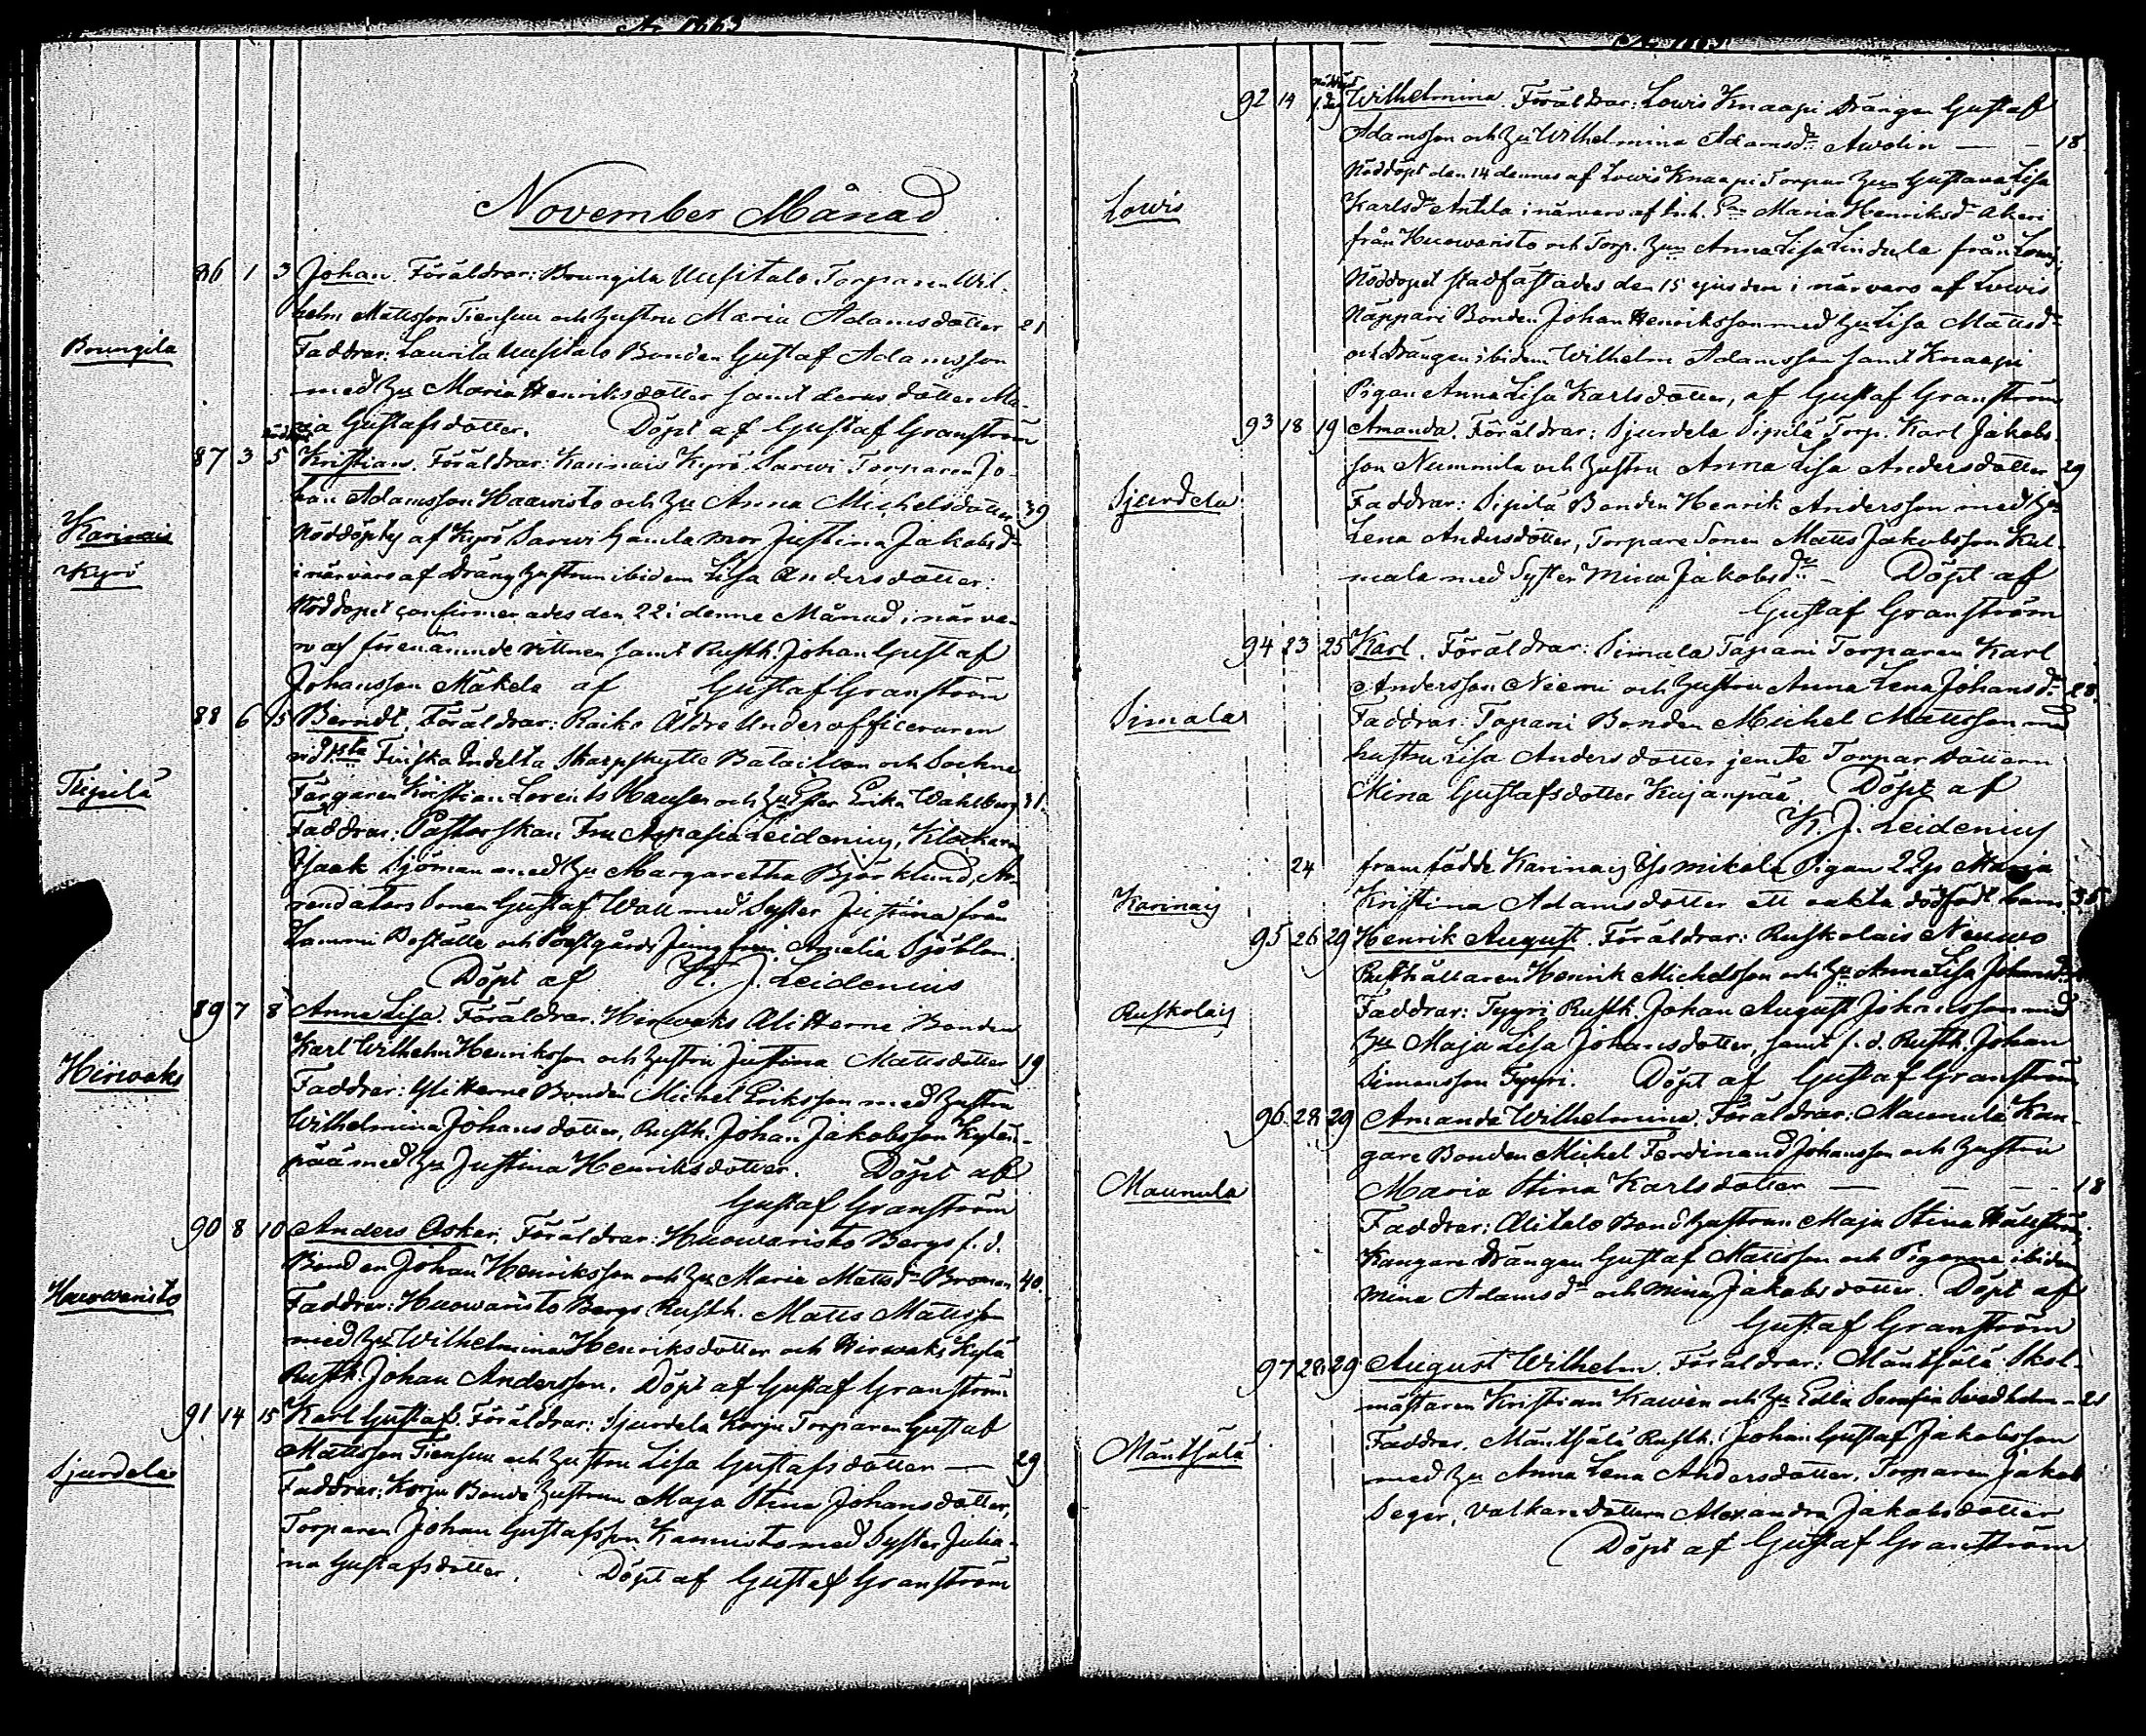 November Månad
Brungila
86 1 3 Johan. Föräldrar: Brungila Uusitalo Torparen Wil-
helm Mattsson Tiensuu och hustru Maria Adamsdotter 21
Faddrar: Laurila Uusitalo Bonden Gustaf Adamsson
med hu Maria Henriksdotter samt deras dotter Ma-
ria Gustafsdotter. Döpt af Gustaf Granström
Karinais
Kyrö
87 3 5 Kristian. Föräldrar: Karinais Kyrö Sarwi Torparen Jo-
han Adamsson Haawisto och hu Anna Michelsdotter 39
Nöddöptes af Kyrö Sarwi Gamla mor Justina Jakobsdr
i närvaro af Dräng hustrun ibidem Lisa Andersdotter.
Nöddopet confirmerades den 22 i denne Månad i närva-
ro af förenämnde vittnen samt Rusth. Johan Gustaf
Johansson Mäkelä af Gustaf Granström
Tiipilä
88 6 15 Berndt. Föräldrar: Raiko Äldre Underofficeraren
vid 1sta Finska Indelta Skarpskytte Bataillon och Sockne
Färgaren Kristian Lorents Hansen och hu Ester Erika Wahlberg 31.
Faddrar: Pastorskan Fru Aspasia Leidenius, Klockaren
Isaak Sjöman med hu Margaretha Björklund, Ar-
rendators Sonen Gustaf Wall med Syster Justina från
Lammi Boställe och Prestgårds Jungfrun Amalia Sjöblom.
Döpt af K. J. Leidenius
Hirwaks
89 7 8 Anna Lisa. Föräldrar: Herwaks Ali Herne Bonden
Karl Wilhelm Henriksson och hustru Justina Mattsdotter 19
Faddrar: Yli Herne Bonden Michel Eriksson med hustru
Wilhelmina Johansdotter, Rusth. Johan Jakobsson Kylän-
pää med hu Justina Henriksdotter. Döpt af
Gustaf Granström
Huowaristo
90 8 10 Anders Oskar. Föräldrar: Huowaristo Bergs f. d.
Bonden Johan Henriksson och hu Maria Mattsdr Broman 40.
Faddrar: Huowaristo Bergs Rusth. Matts Mattsson
med hu Wilhelmina Henriksdotter och Hirwaks Kylä
Rusth. Johan Andersson. Döpt af Gustaf Granström
Sjurdela
91 14 15 Karl Gustaf. Föräldrar: Sjurdela Korpu Torparen Gustaf
Mattsson Tiensuu och hustru Lisa Gustafsdotter — 29
Faddrar: Korpu Bonde hustrun Maja Stina Johansdotter,
Torparen Johan Gustafsson Kannisto med Syster Julia-
na Gustafsdotter. Döpt af Gustaf Granström
Lowis
92 14 nöddöpt 1 dag Wilhelmina. Föräldrar: Lowis Knaapi Drängen Gustaf
Adamsson och hu Wilhelmina Adamsdr Awolin — — 18
Nöddöpt den 14 dennes af Lowis Knaapi Torpar hun Gustava Lisa
Karlsdr Anttila i närvaro af Maria Henriksdr Akeri
från Huowaristo och Torp. hun Anna Lisa Lindula från Lowis.
Nöddopet stadfästades den 15 ejusdem i närvaro af Lowis
Näppäri Bonden Johan Henriksson med hu Lisa Mattsdr
och Drängen ibidem Wilhelm Adamsson samt Knaapi
Pigan Anna Lisa Karlsdotter, af Gustaf Granström
Sjurdela
93 18 19 Amanda. Föräldrar: Sjurdela Sipilä Torp. Karl Jakobs-
son Nummila och hustru Anna Lisa Andersdotter 29
Faddrar: Sipilä Bonden Henrik Andersson med hu
Lena Andersdotter, Torpare Sonen Matts Jakobsson Kul-
mala med Syster Mina Jakobsdr — Döpt af
Gustaf Granström
Simala
94 23 25 Karl. Föräldrar: Simala Tapani Torparen Karl
Andersson Niemi och hustru Anna Lena Johansdr 28
Faddrar: Tapani Bonden Michel Mattsson med
hustru Lisa Andersdotter jemte Torpar dottern
Mina Gustafsdotter Kujanpää. Döpt af
K. J. Leidenius
Karinais
24 framfödde Karinais Mikola Pigan Maria
Kristina Adamsdotter ett oäkta dödfödt barn. 35
Ruskolais
95 26 29 Henrik August. Föräldrar: Ruskolais Neuwo
Rusthållaren Henrik Michelsson och hu Anna Lisa Johansdr
Faddrar: Tyyri Rusth. Johan August Johansson med
hu Maja Lisa Johansdotter, samt f. d. Rusth. Johan
Simonsson Tyyri. Döpt af Gustaf Granström
Maunula
96 28 29 Amanda Wilhelmina. Föräldrar: Maunula Kan-
gare Bonden Michel Ferdinand Johansson och hustru
Maria Stina Karlsdotter — — — 18
Faddrar: Alitalo Bond hustrun Maja Stina Hällström,
Kangare Drängen Gustaf Mattsson och Pigorne ibidem
Mina Adamsdr och Mina Jakobsdotter. Döpt af
Gustaf Granström
Mäntsälä
97 28 29 August Wilhelm. Föräldrar: Mäntsälä Skol-
mästaren Kristian Kawén och hu Edla Serafia Swedholm — 21
Faddrar. Mäntsälä Rusth. Johan Gustaf Jakobsson
med hu Anna Lena Andersdotter, Torparen Jakob
Seger, Valkare Dottern Alexandra Jakobsdotter
Döpt af Gustaf Granström